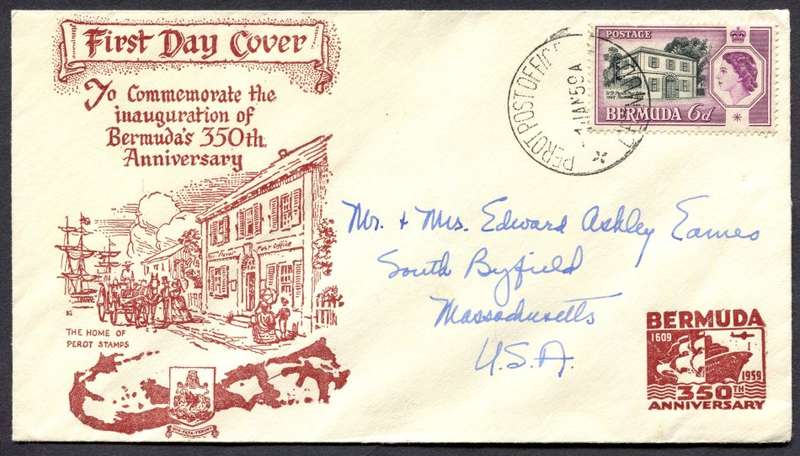 First Day Cover
To Commemorate the
inauguration of
Bermuda's 350th
Anniversary
Perot Post Office
THE HOME OF
PEROT STAMPS
POSTAGE
BERMUDA 6d
PEROT POST OFFICE
1 JAN 59 A
Mr. + Mrs. Edward Ashley Eames
South Byfield
Massachusetts
U.S.A.
BERMUDA
1609
1959
350TH
ANNIVERSARY